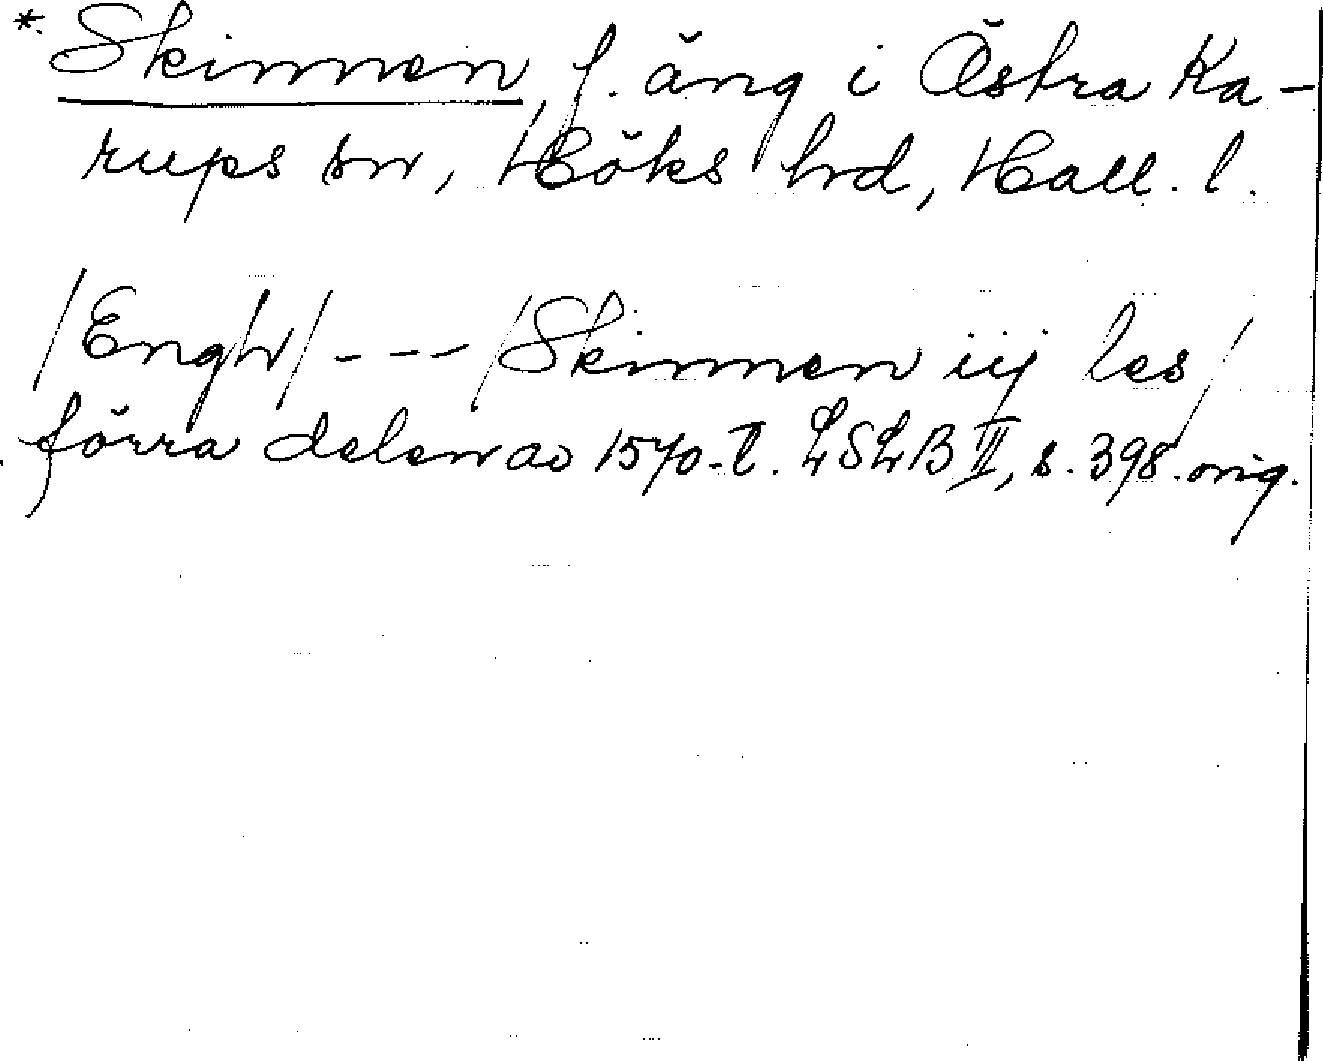 * Skinnen, f. äng i Östra Ka-
rups sn, Höks hrd, Hall. l.
/Engh/ --- /Skinnen iij les/
förra delen av 1570-t. LSLB II, s. 398. orig.